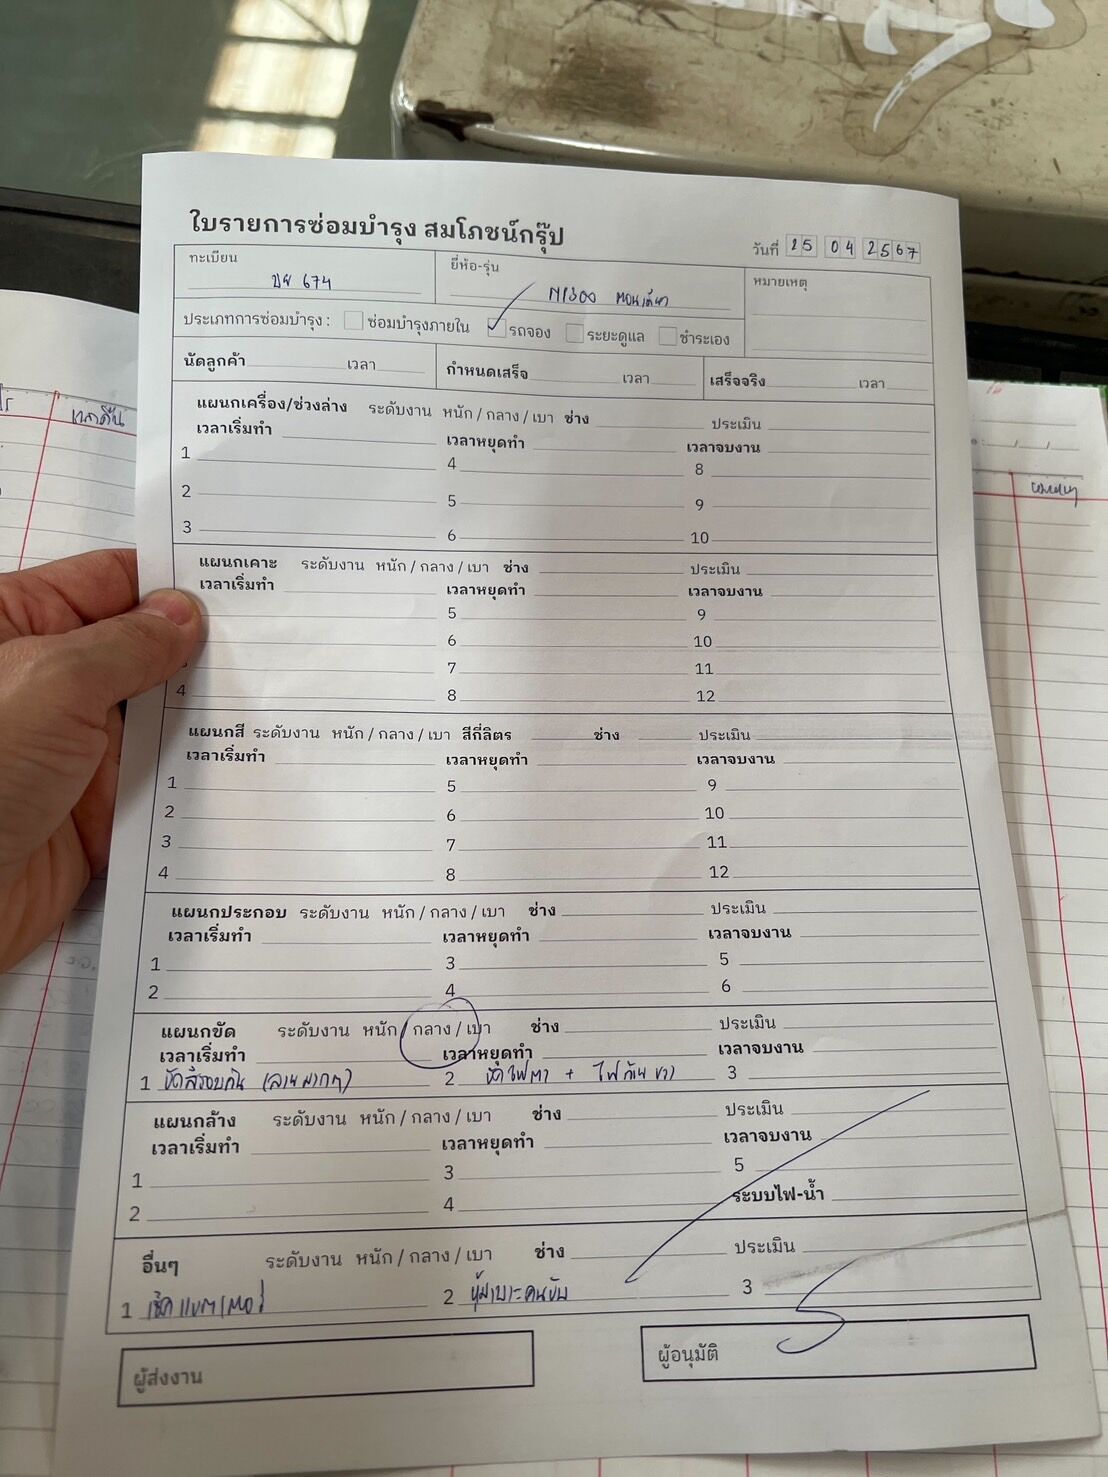 ใบรายการซ่อมบำรุง สมโภชน์กรุ๊ป
วันที่ 25 04 2567
ทะเบียน
674
ยี่ห้อ-รุ่น
หมายเหตุ
ประเภทการซ่อมบำรุง : ซ่อมบำรุงภายใน รถจอง ระยะดูแล ชำระเอง
นัดลูกค้า เวลา กำหนดเสร็จ เวลา เสร็จจริง เวลา
แผนกเครื่อง/ช่วงล่าง ระดับงาน หนัก / กลาง / เบา ช่าง ประเมิน
เวลาเริ่มทำ เวลาหยุดทำ เวลาจบงาน
1 4 8
2 5 9
3 6 10
แผนกเคาะ ระดับงาน หนัก / กลาง / เบา ช่าง ประเมิน
เวลาเริ่มทำ เวลาหยุดทำ เวลาจบงาน
5 9
6 10
7 11
4 8 12
แผนกสี ระดับงาน หนัก / กลาง / เบา สีกี่ลิตร ช่าง ประเมิน
เวลาเริ่มทำ เวลาหยุดทำ เวลาจบงาน
1 5 9
2 6 10
3 7 11
4 8 12
แผนกประกอบ ระดับงาน หนัก / กลาง / เบา ช่าง ประเมิน
เวลาเริ่มทำ เวลาหยุดทำ เวลาจบงาน
1 3 5
2 4 6
แผนกขัด ระดับงาน หนัก / กลาง / เบา ช่าง ประเมิน
เวลาเริ่มทำ เวลาหยุดทำ เวลาจบงาน
1 ขัดสีรอบคัน (ลายมากๆ) 2 ขัดไฟตา + 3
แผนกล้าง ระดับงาน หนัก / กลาง / เบา ช่าง ประเมิน
เวลาเริ่มทำ เวลาหยุดทำ เวลาจบงาน
1 3 5
2 4 ระบบไฟ-น้ำ
อื่นๆ ระดับงาน หนัก / กลาง / เบา ช่าง ประเมิน
1 เช็คแบตเตอรี่ 2 หุ้มเบาะคนขับ 3
ผู้ส่งงาน
ผู้อนุมัติ